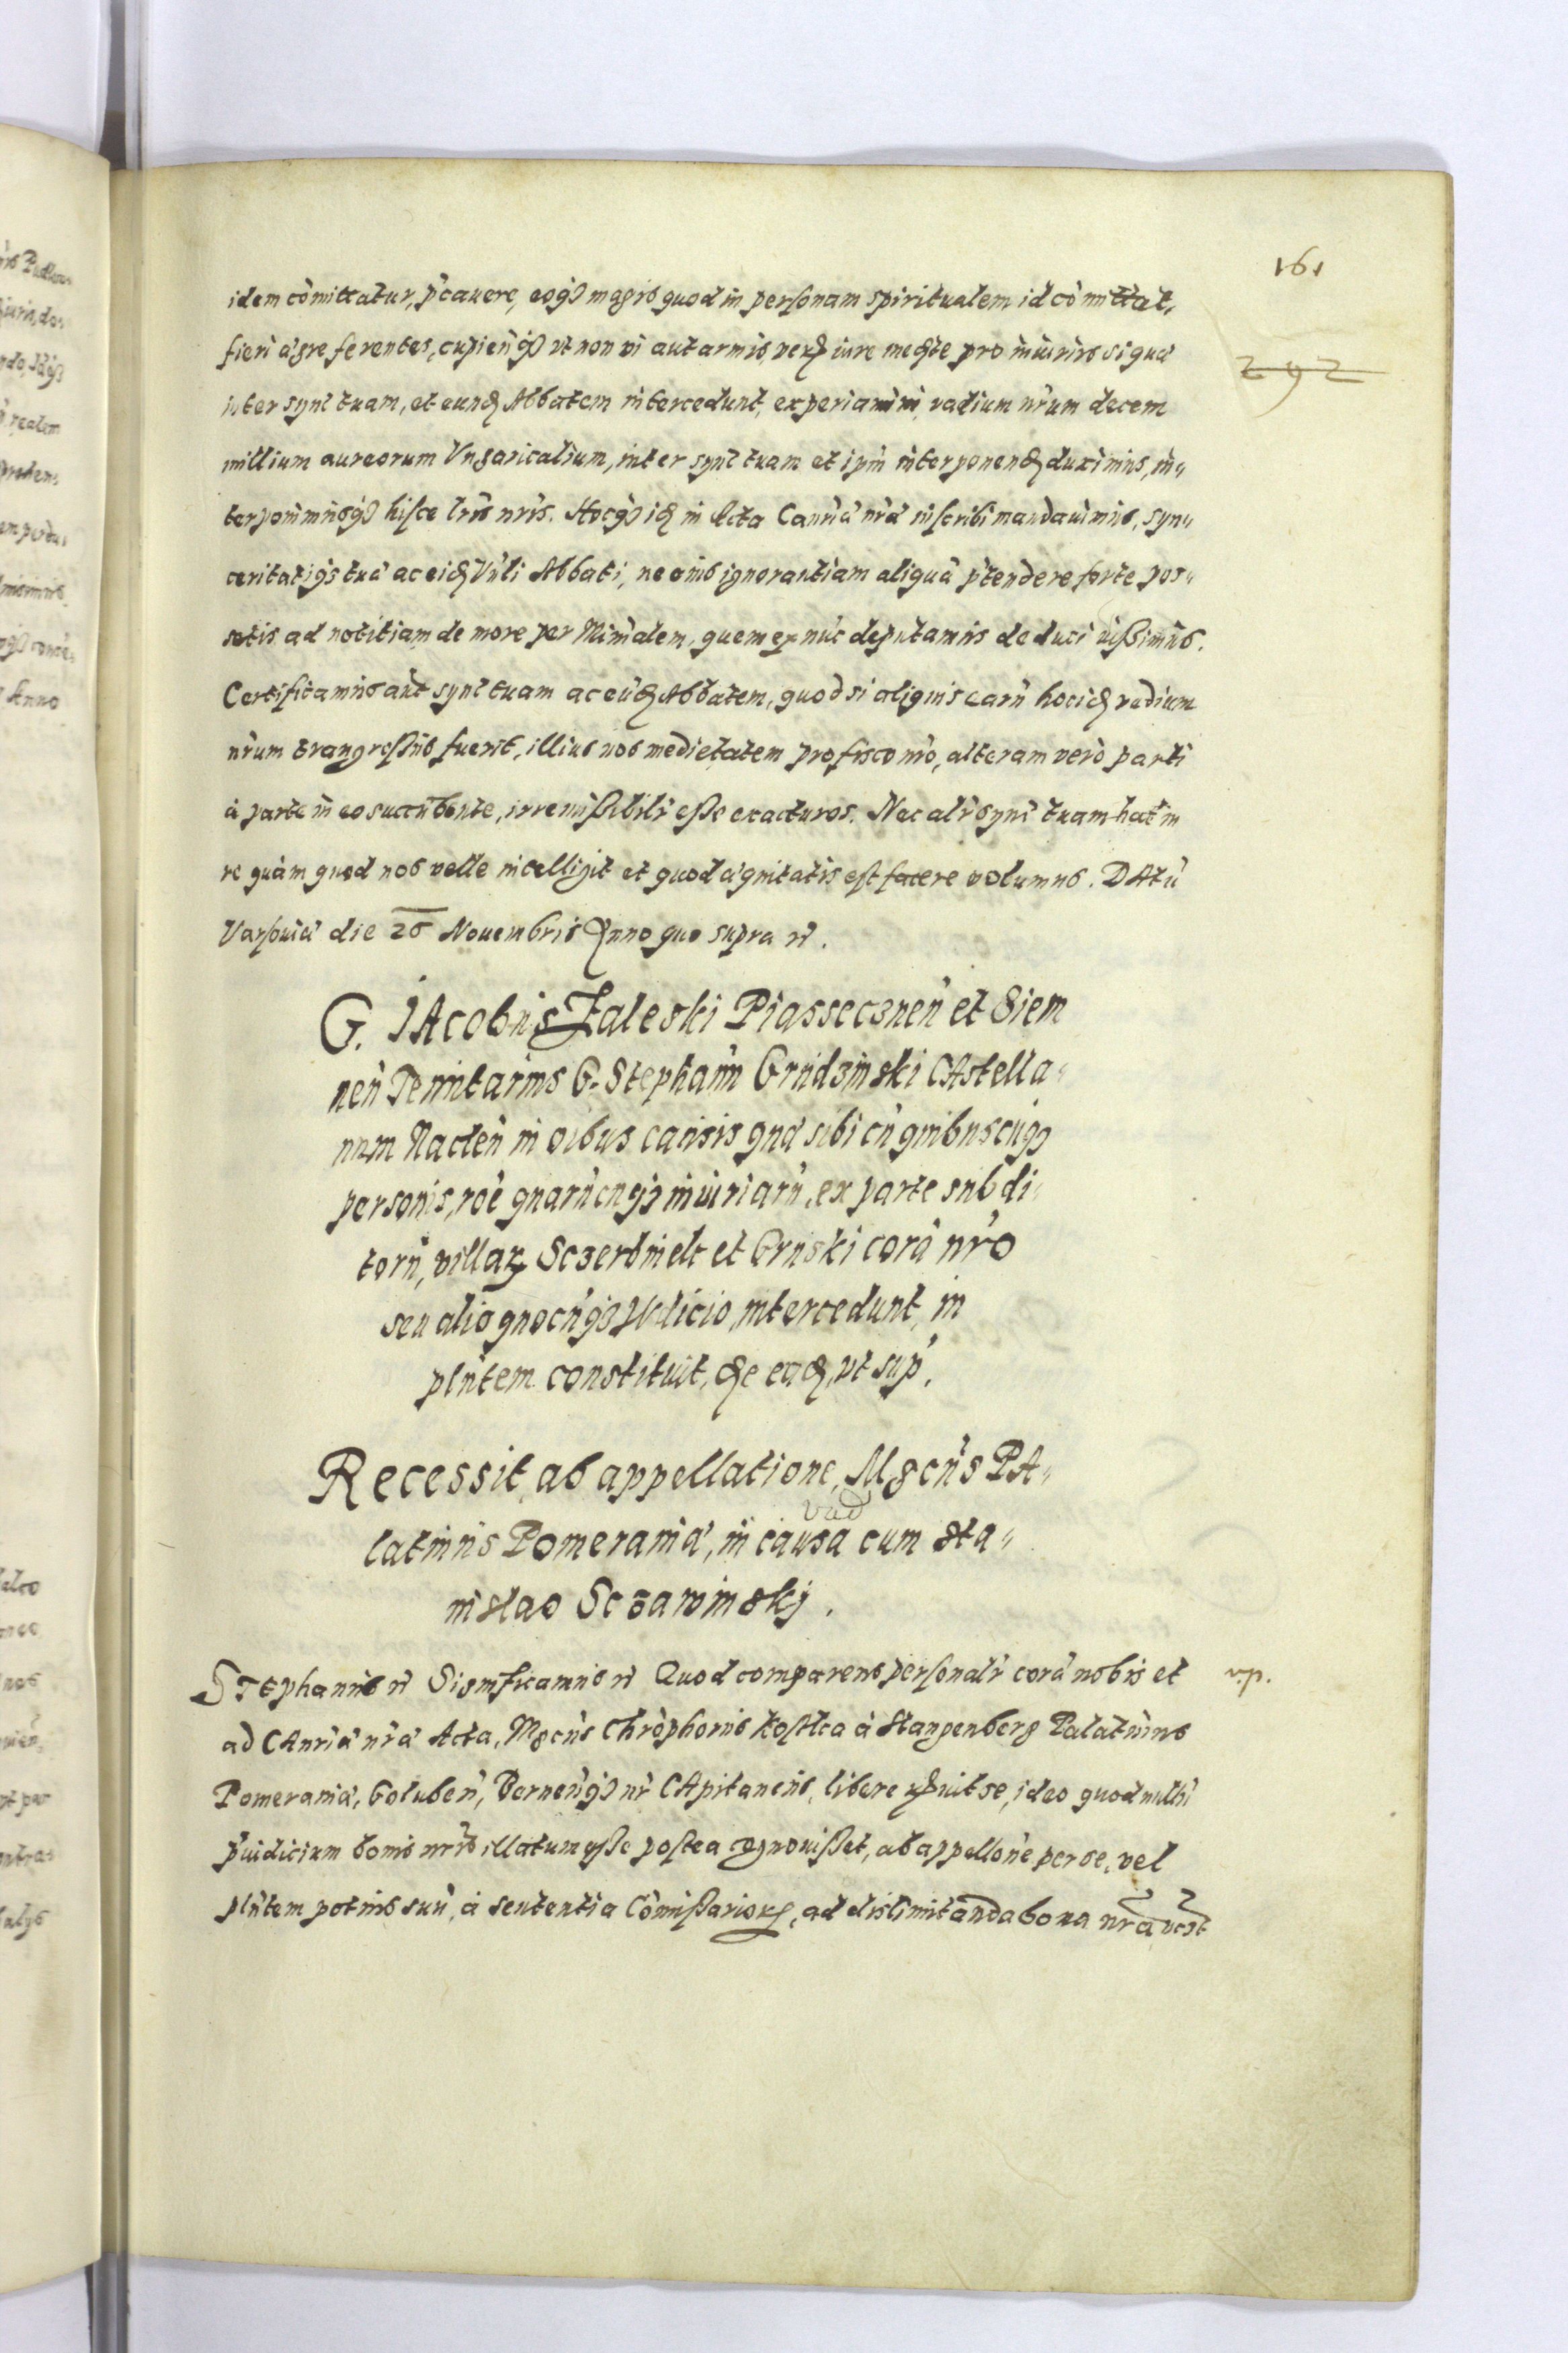 161
idem cōmittatur, p̄cauere, eoq₃ magis quod in personam spiritualem id cōmittat,
fieri ægre ferentes, cupien̄q₃ vt non vi aut armis, verū iure medn̄te pro iniuriis si quæ
inter syn̄t tuam, et eund̄ Abbatem intercedunt, experiamini, vadium n̄rum decem
292
millium aureorum Vngaricalium, inter syn̄t tuam et ipm̄ interponend̄ duximus, in„
terponimusq₃ hisce l̄ris n̄ris. Hocq₃ id̄ in Acta Can̄riæ n̄ræ inscribi mandauimus, syn„
ceritatiq₃ tuæ ac eid̄ Vn̄li Abbati, ne om̄s ignorantiam aliquā p̄tendere forte pos„
setis ad notitiam de more per Min̄alem, quem ex nūc deputamus deduci iussimus.
Certificamus aūt syn̄t tuam ac eūd̄ Abbatem, quod si aliquis earū hocid̄ vadium
n̄rum transgressus fuerit, illius nos medietatem pro fisco n̄ro, alteram verò parti
à parte in eo succūbente, irremissibilr̄ esse exacturos. Nec alr̄ syn̄t tuam hac in
re quàm quod nos velle intelligit et quod æquitatis est facere volumus. DAtū
Varsouiæ die 26 Nouembris Anno quo supra r̄.
G. JAcobus Zaleski Piasseczneñ et Siem
neñ Tenutarius G. Stephanū Grudzinski CAstella„
num Nacleñ in oībus causis quæ sibi cū quibuscūq₃
personis, rōe quarūcuq₃ iniuriarū, ex parte subdi„
torū, villarꝝ Sczerbin et Gruski corā n̄ro
seu alio quocūq₃ Judicio, intercedunt, in
pl̄ntem constituit, de ead̄, vt sup̄.
Recessit ab appellatione, Mgcūs PA„
vad
latinus Pomeraniæ, in causa cum Sta„
nislao Sczawinskj.
STephanus r̄ Significamus r̄ Quod comparens personalr̄ corā nobis et
v.p.
ad CAn̄riæ n̄ræ Acta, Mgcūs Chr̄ophorus Kostka à Stangenberg Palatinus
Pomeraniæ, Golubeñ, Berneñq₃ nr̄ CApitaneus, libere exuit se, ideo quod nullū
p̄iudicium bonis n̄ris illatum esse postea cognouisset, ab appellōne per se, vel
pl̄ntem potius suū, à sententia Cōmissariorꝝ, ad dislimitanda bona n̄ra